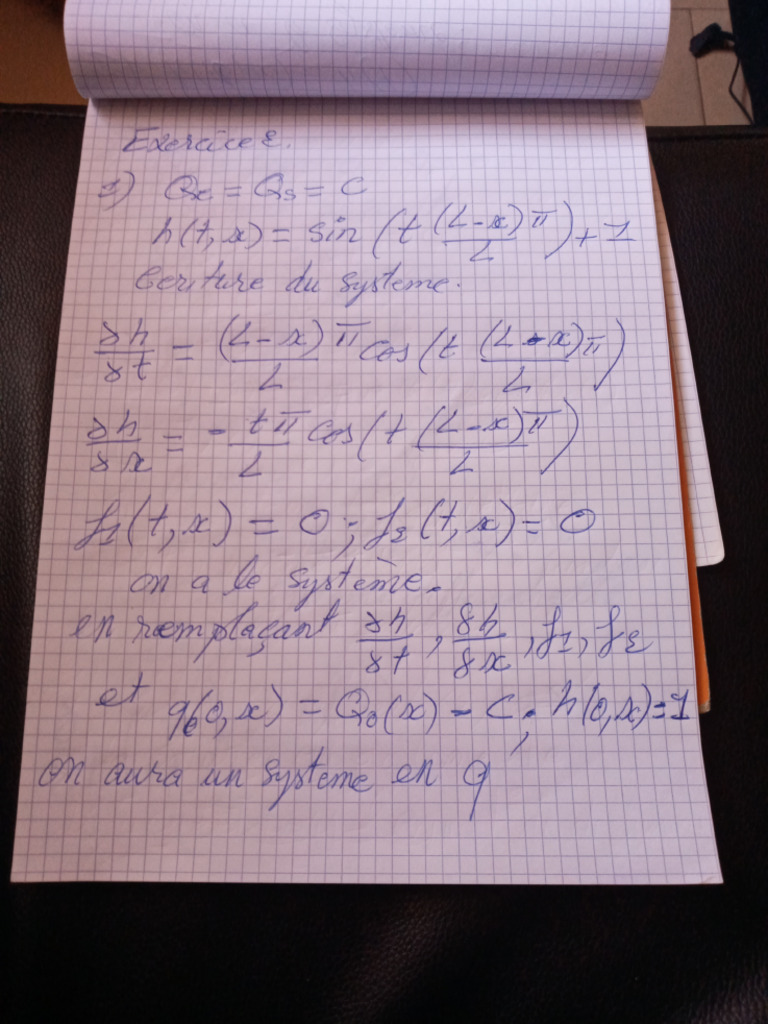 Exercice 2.
1) Qe = Qs = C
h(t,x) = sin (t (L-x)π/L) + 1
Ecriture du systeme.
∂h/∂t = (L-x)π/L cos(t (L-x)π/L)
∂h/∂x = - tπ/L cos(t (L-x)π/L)
f1(t,x) = 0 ; f2(t,x) = 0
on a le système.
en remplaçant ∂h/∂t, ∂h/∂x, f1, f2
et q(0,x) = Q0(x) - C ; h(0,x) = 1
on aura un systeme en q